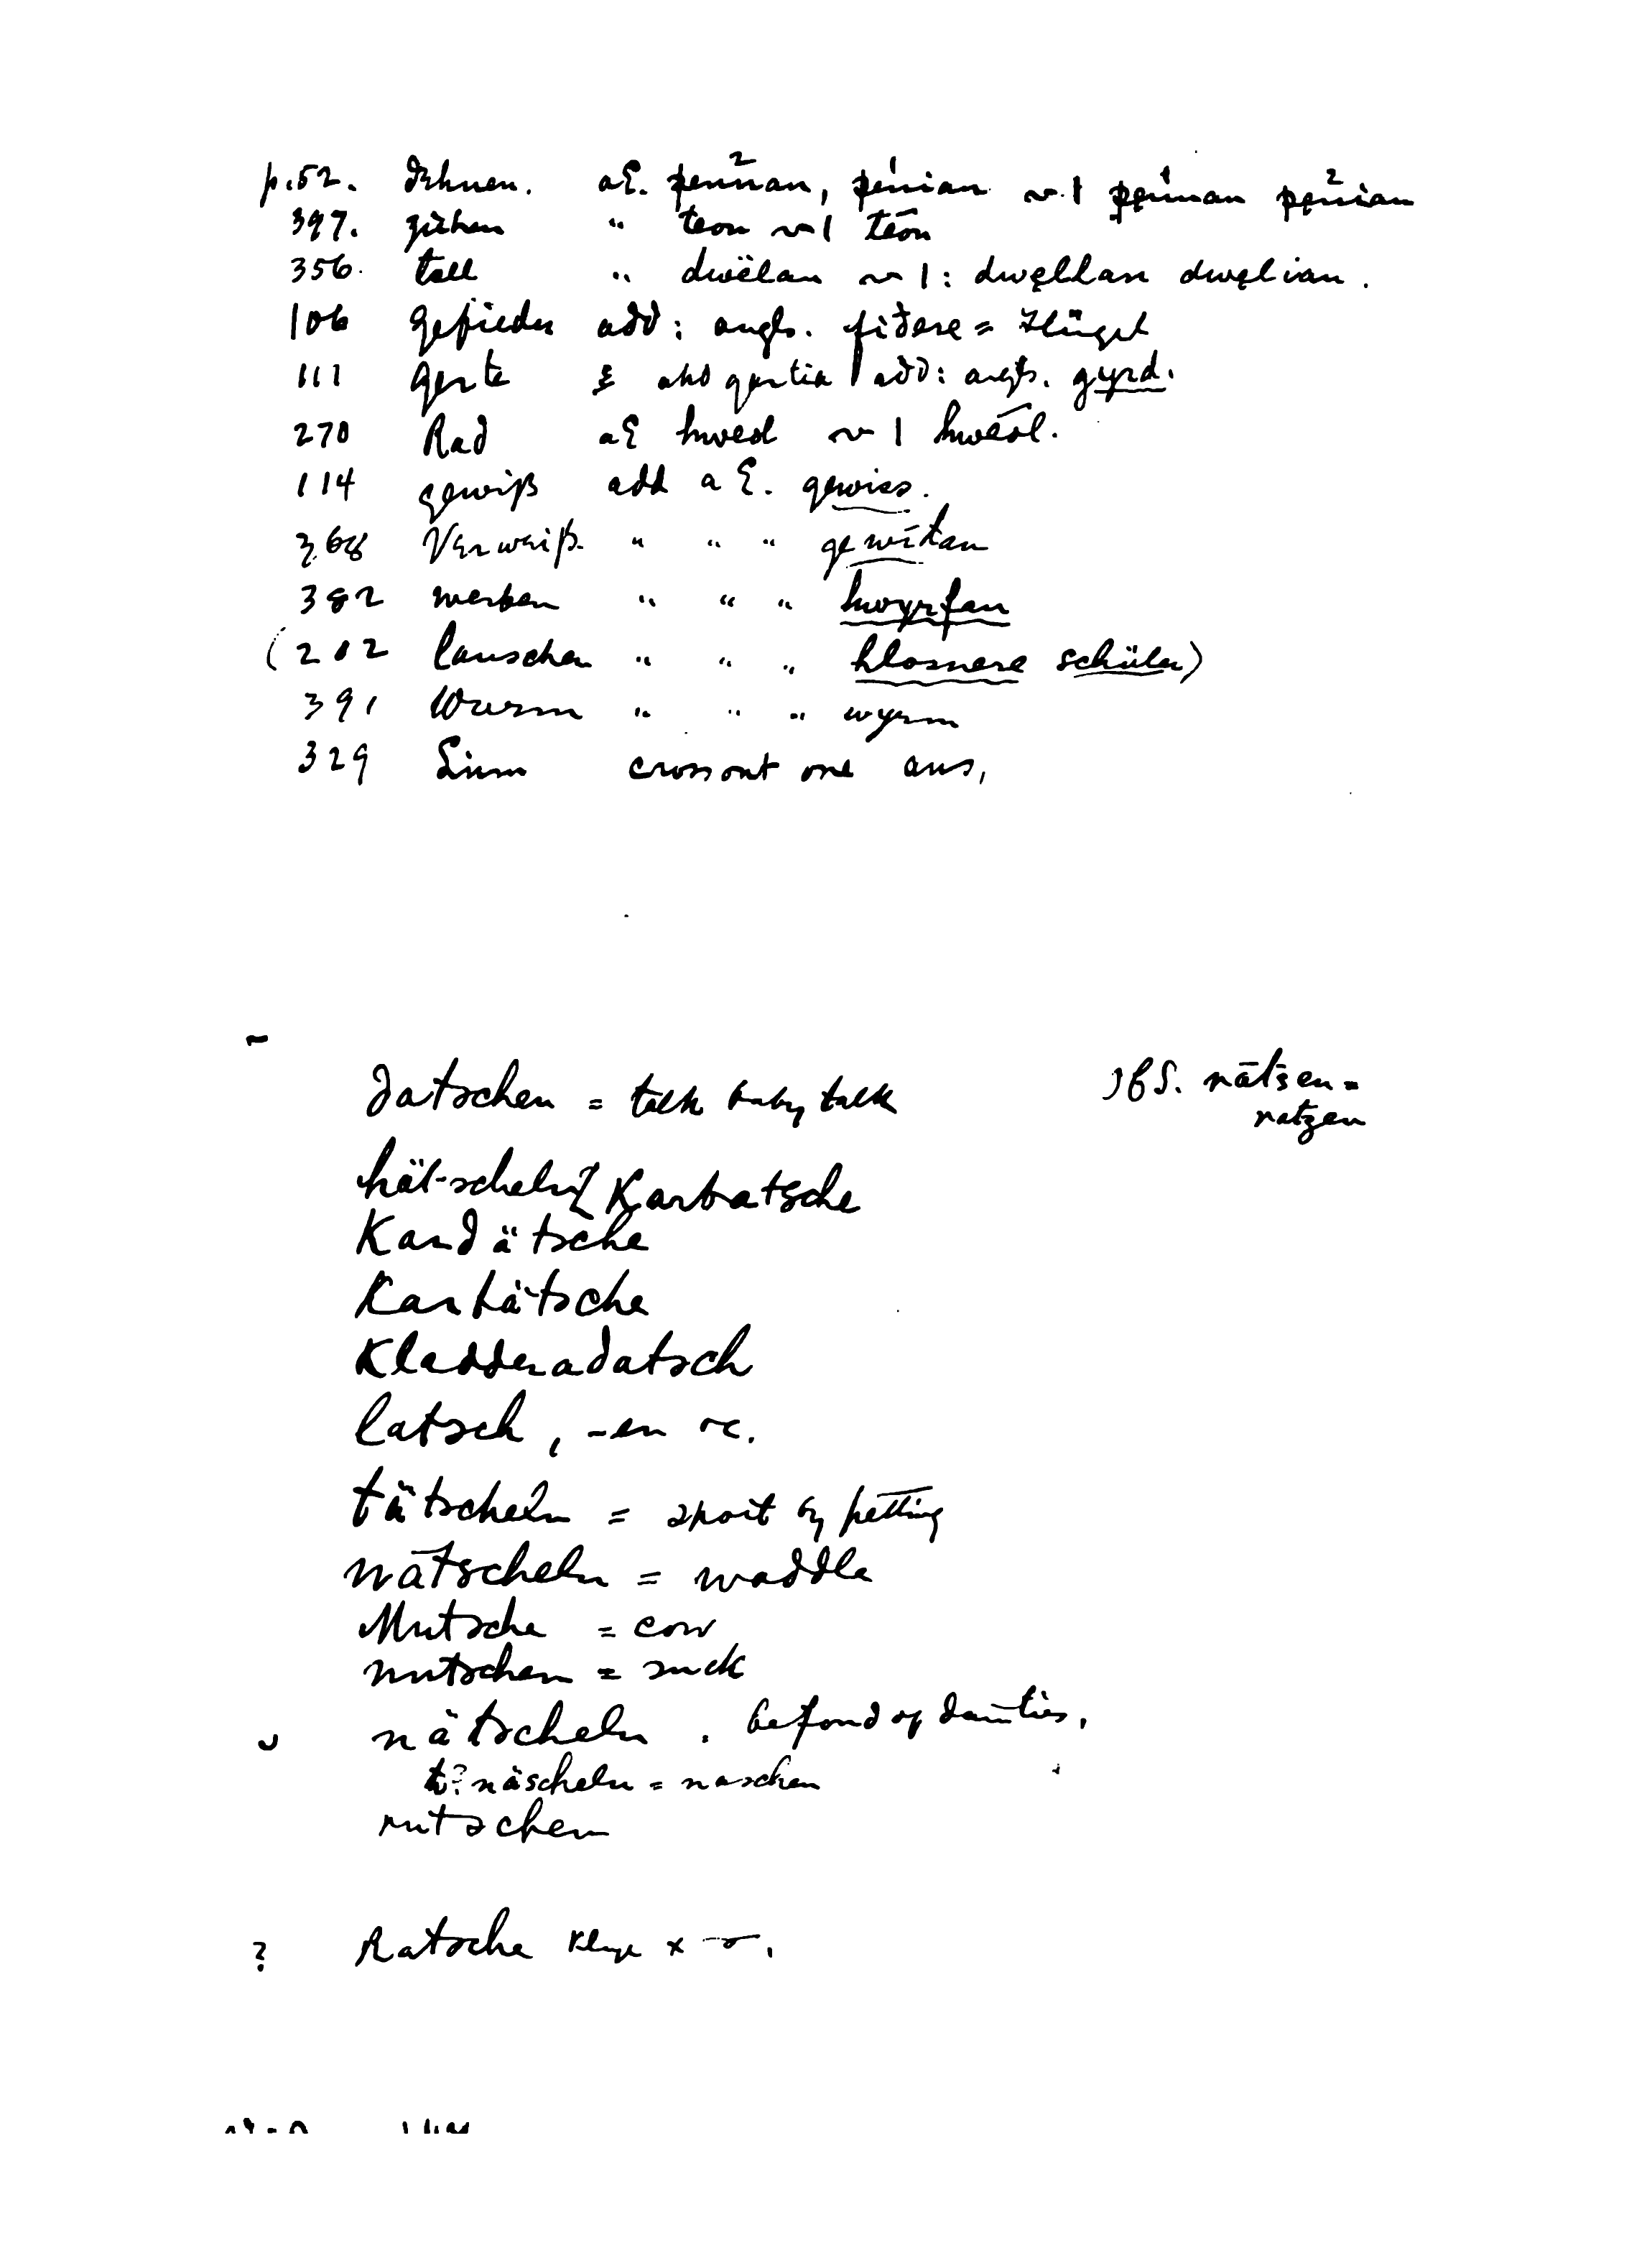 p. 52. dehnen. aE. þennan, þenian ~ 1 þęnnan þęnian
397. ziehen " teon ~ 1 tēon
356. toll " dwëlan ~ 1 : dwęllan dwęlian.
106 Gefieder add : angls. fiðere = Flügel
111 Gerte ahd gertia | add : angls. gyrd.
270 Rad aE hweol ~ 1 hwēol.
114 gewiß add aE. gewiss.
368 Verweiß " " " gewītan
382 werben " " " hwyrfan
(202 lauschen " " " hlosnere schüler)
391 Wurm " " " wyrm
329 Sinn cross out one aus,
datschen = talk baby talk
nātšen =
natzen
hät-scheln { Karbatsche
Kardätsche
Kartätsche
Kladderadatsch
latsch, -en
tätscheln = spoil by petting
wātscheln = waddle
Mutsche = cow
nutschen = suck
nätscheln . be fond of dainties,
näscheln = naschen
rutschen
? Ratsche Kluge x